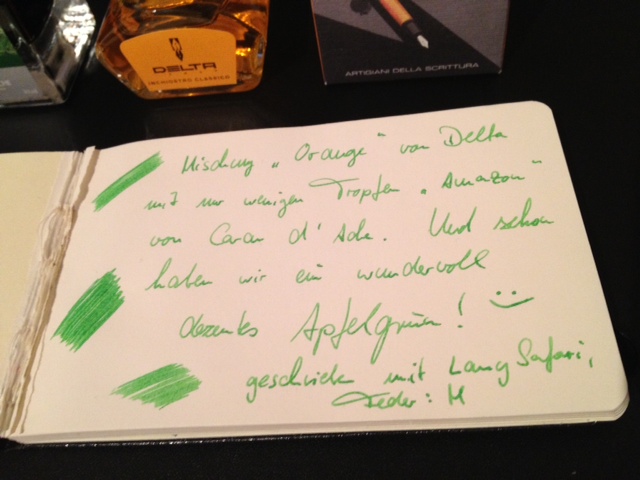 DELTA
INCHIOSTRO CLASSICO
ARTIGIANI DELLA SCRITTURA
Mischung „Orange“ von Delta
mit nur wenigen Tropfen „Amazon“
von Caran d'Ache. Und schon
haben wir ein wundervoll
dezentes Apfelgrün! :-)
geschrieben mit Lamy Safari,
Feder: M